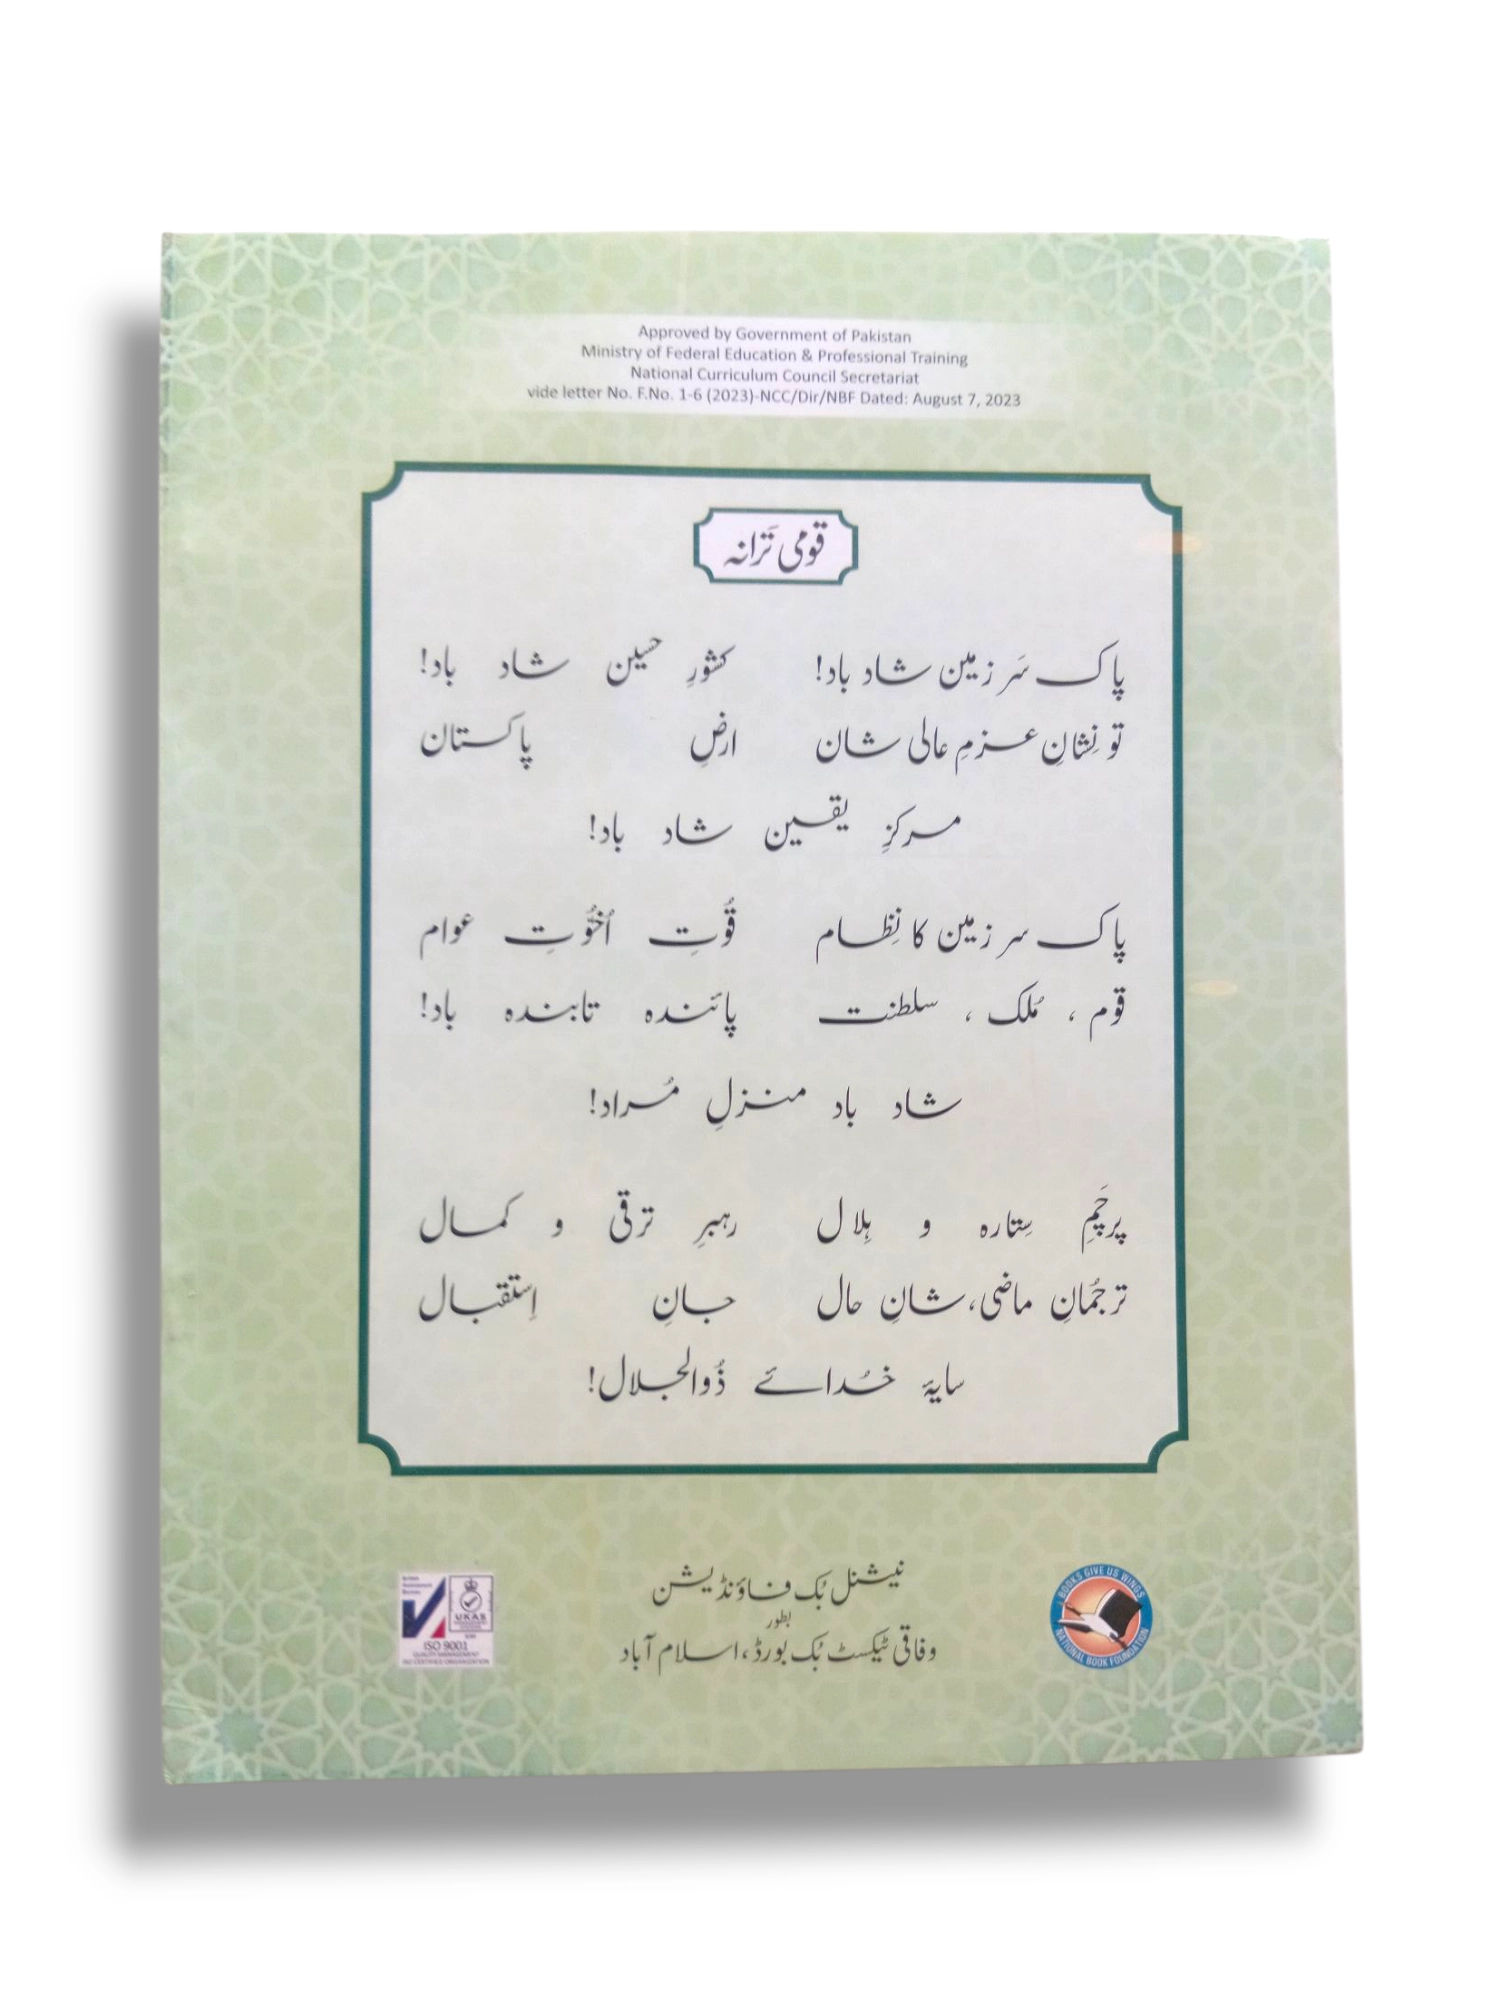 Approved by Government of Pakistan
Ministry of Federal Education & Professional Training
National Curriculum Council Secretariat
vide letter No. F.No. 1-6 (2023)-NCC/Dir/NBF Dated: August 7, 2023
قومی تَرانہ
پاک سَرزمین شاد باد! کشورِ حسین شاد باد!
تو نِشانِ عزمِ عالی شان ارضِ پاکستان
مرکزِ یقین شاد باد!
پاک سرزمین کا نِظام قُوّتِ اُخُوّتِ عوام
قوم ، مُلک ، سلطنت پائندہ تابندہ باد!
شاد باد منزلِ مُراد!
پرچَمِ سِتارہ و ہِلال رہبرِ ترقی و کمال
ترجُمانِ ماضی، شانِ حال جانِ اِستقبال
سایۂ خُدائے ذُوالجلال!
نیشنل بُک فاؤنڈیشن
بطور
وفاقی ٹیکسٹ بُک بورڈ، اسلام آباد
UKAS
ISO 9001
QUALITY MANAGEMENT
ISO CERTIFIED ORGANIZATION
BOOKS GIVE US WINGS
NATIONAL BOOK FOUNDATION